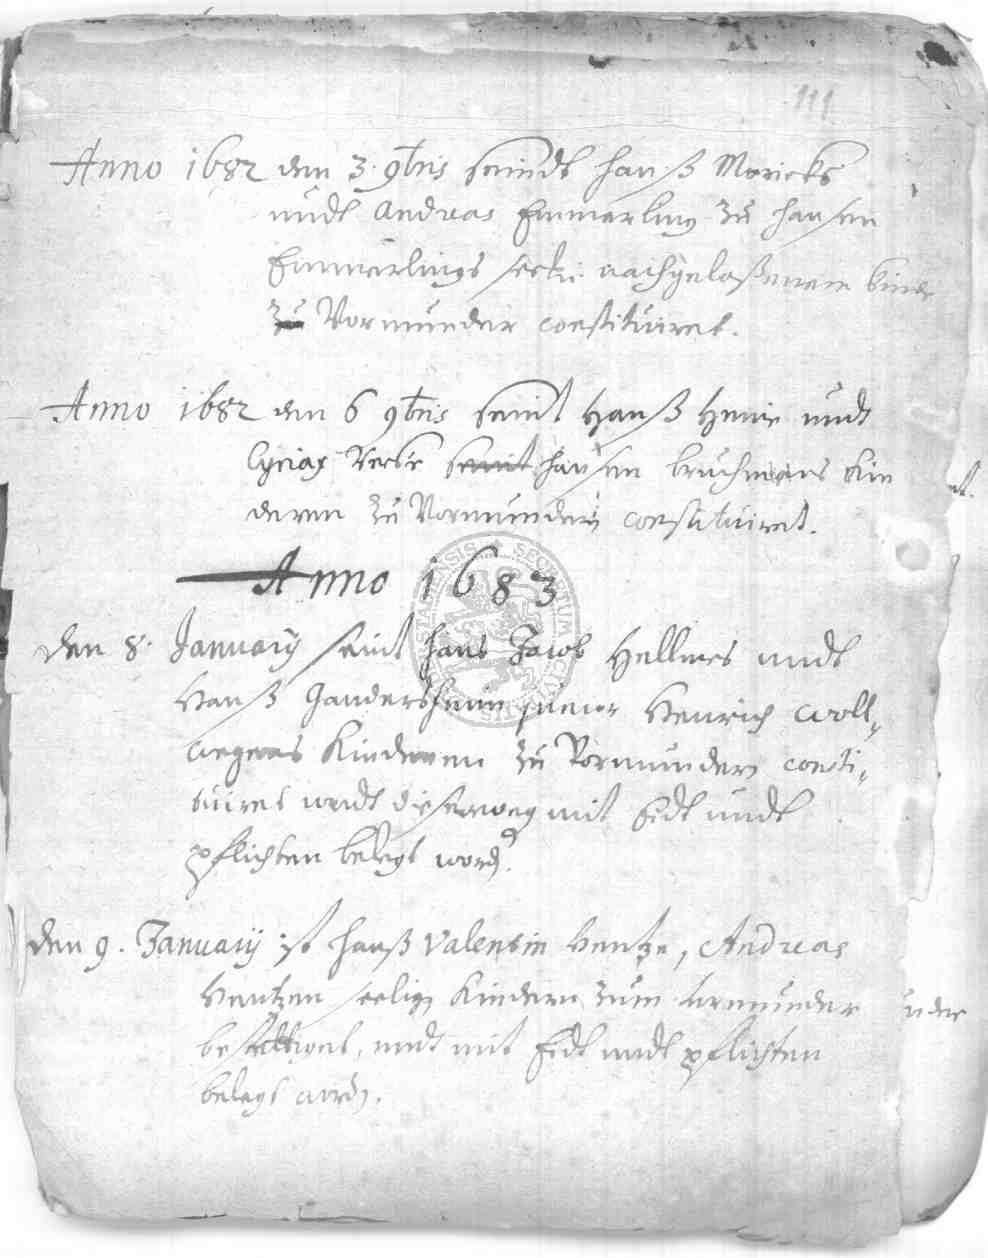 111
Anno 1682 den 3. 9bris seindt Hanß Moricks
undt Andreas Emmerling zu Hansen
Emmerlings seel. nachgelaßenem Kinde
zu Vormünder constituiret.
Anno 1682 den 6 9bris seint Hanß Henie undt
Cyriax seint Hansen Kin
deren zu Vormünder constituiret.
Anno 1683
den 8. January seint Hans Jacob Hellmes undt
Hanß Gandersheim junior Henrich Woll-
wegens Kinderen zu Vormündern consti-
tuiret undt dieserweg mit Eidt undt
pflichten belegt word.
den 9. January ist Hanß Valentin Hentze, Andreas
Hentzen seelig Kindern zum vormünder
bestellet, undt mit Eidt undt pflichten
belegt word.